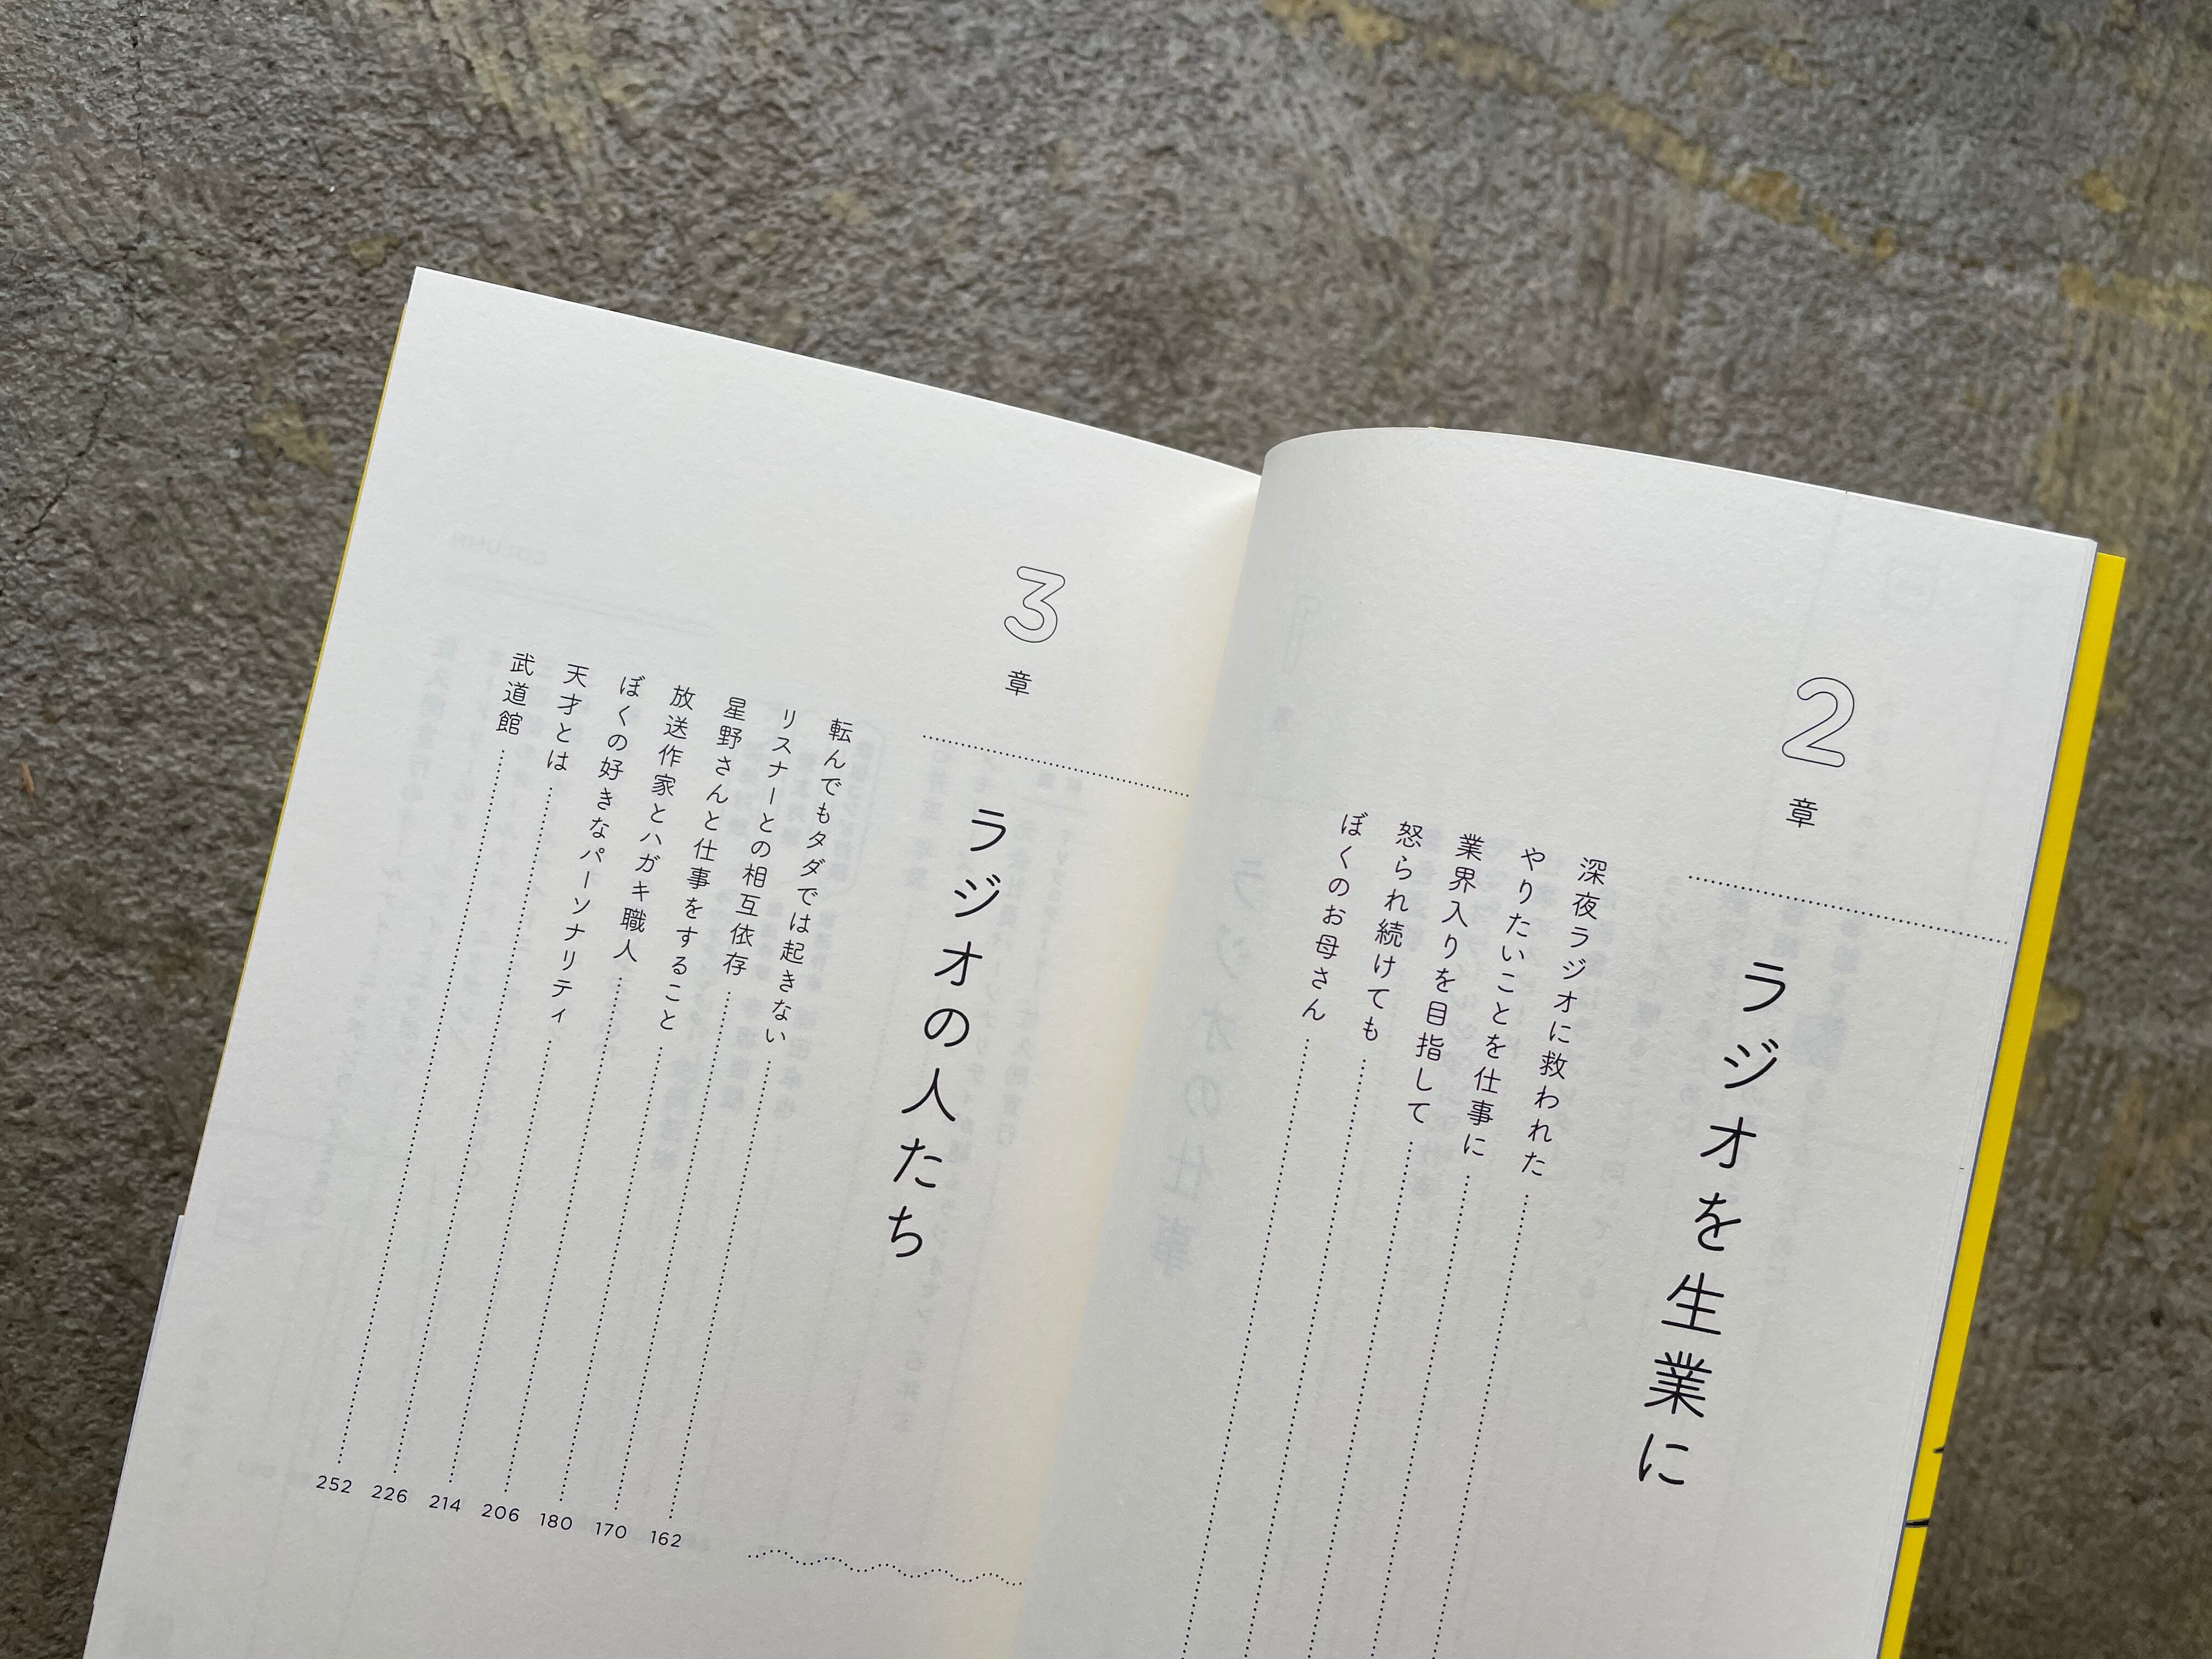 2章
ラジオを生業に
深夜ラジオに救われた
やりたいことを仕事に
業界入りを目指して
怒られ続けても
ぼくのお母さん
3章
ラジオの人たち
転んでもタダでは起きない 162
リスナーとの相互依存 170
星野さんと仕事をすること 180
放送作家とハガキ職人 206
ぼくの好きなパーソナリティ 214
天才とは 226
武道館 252